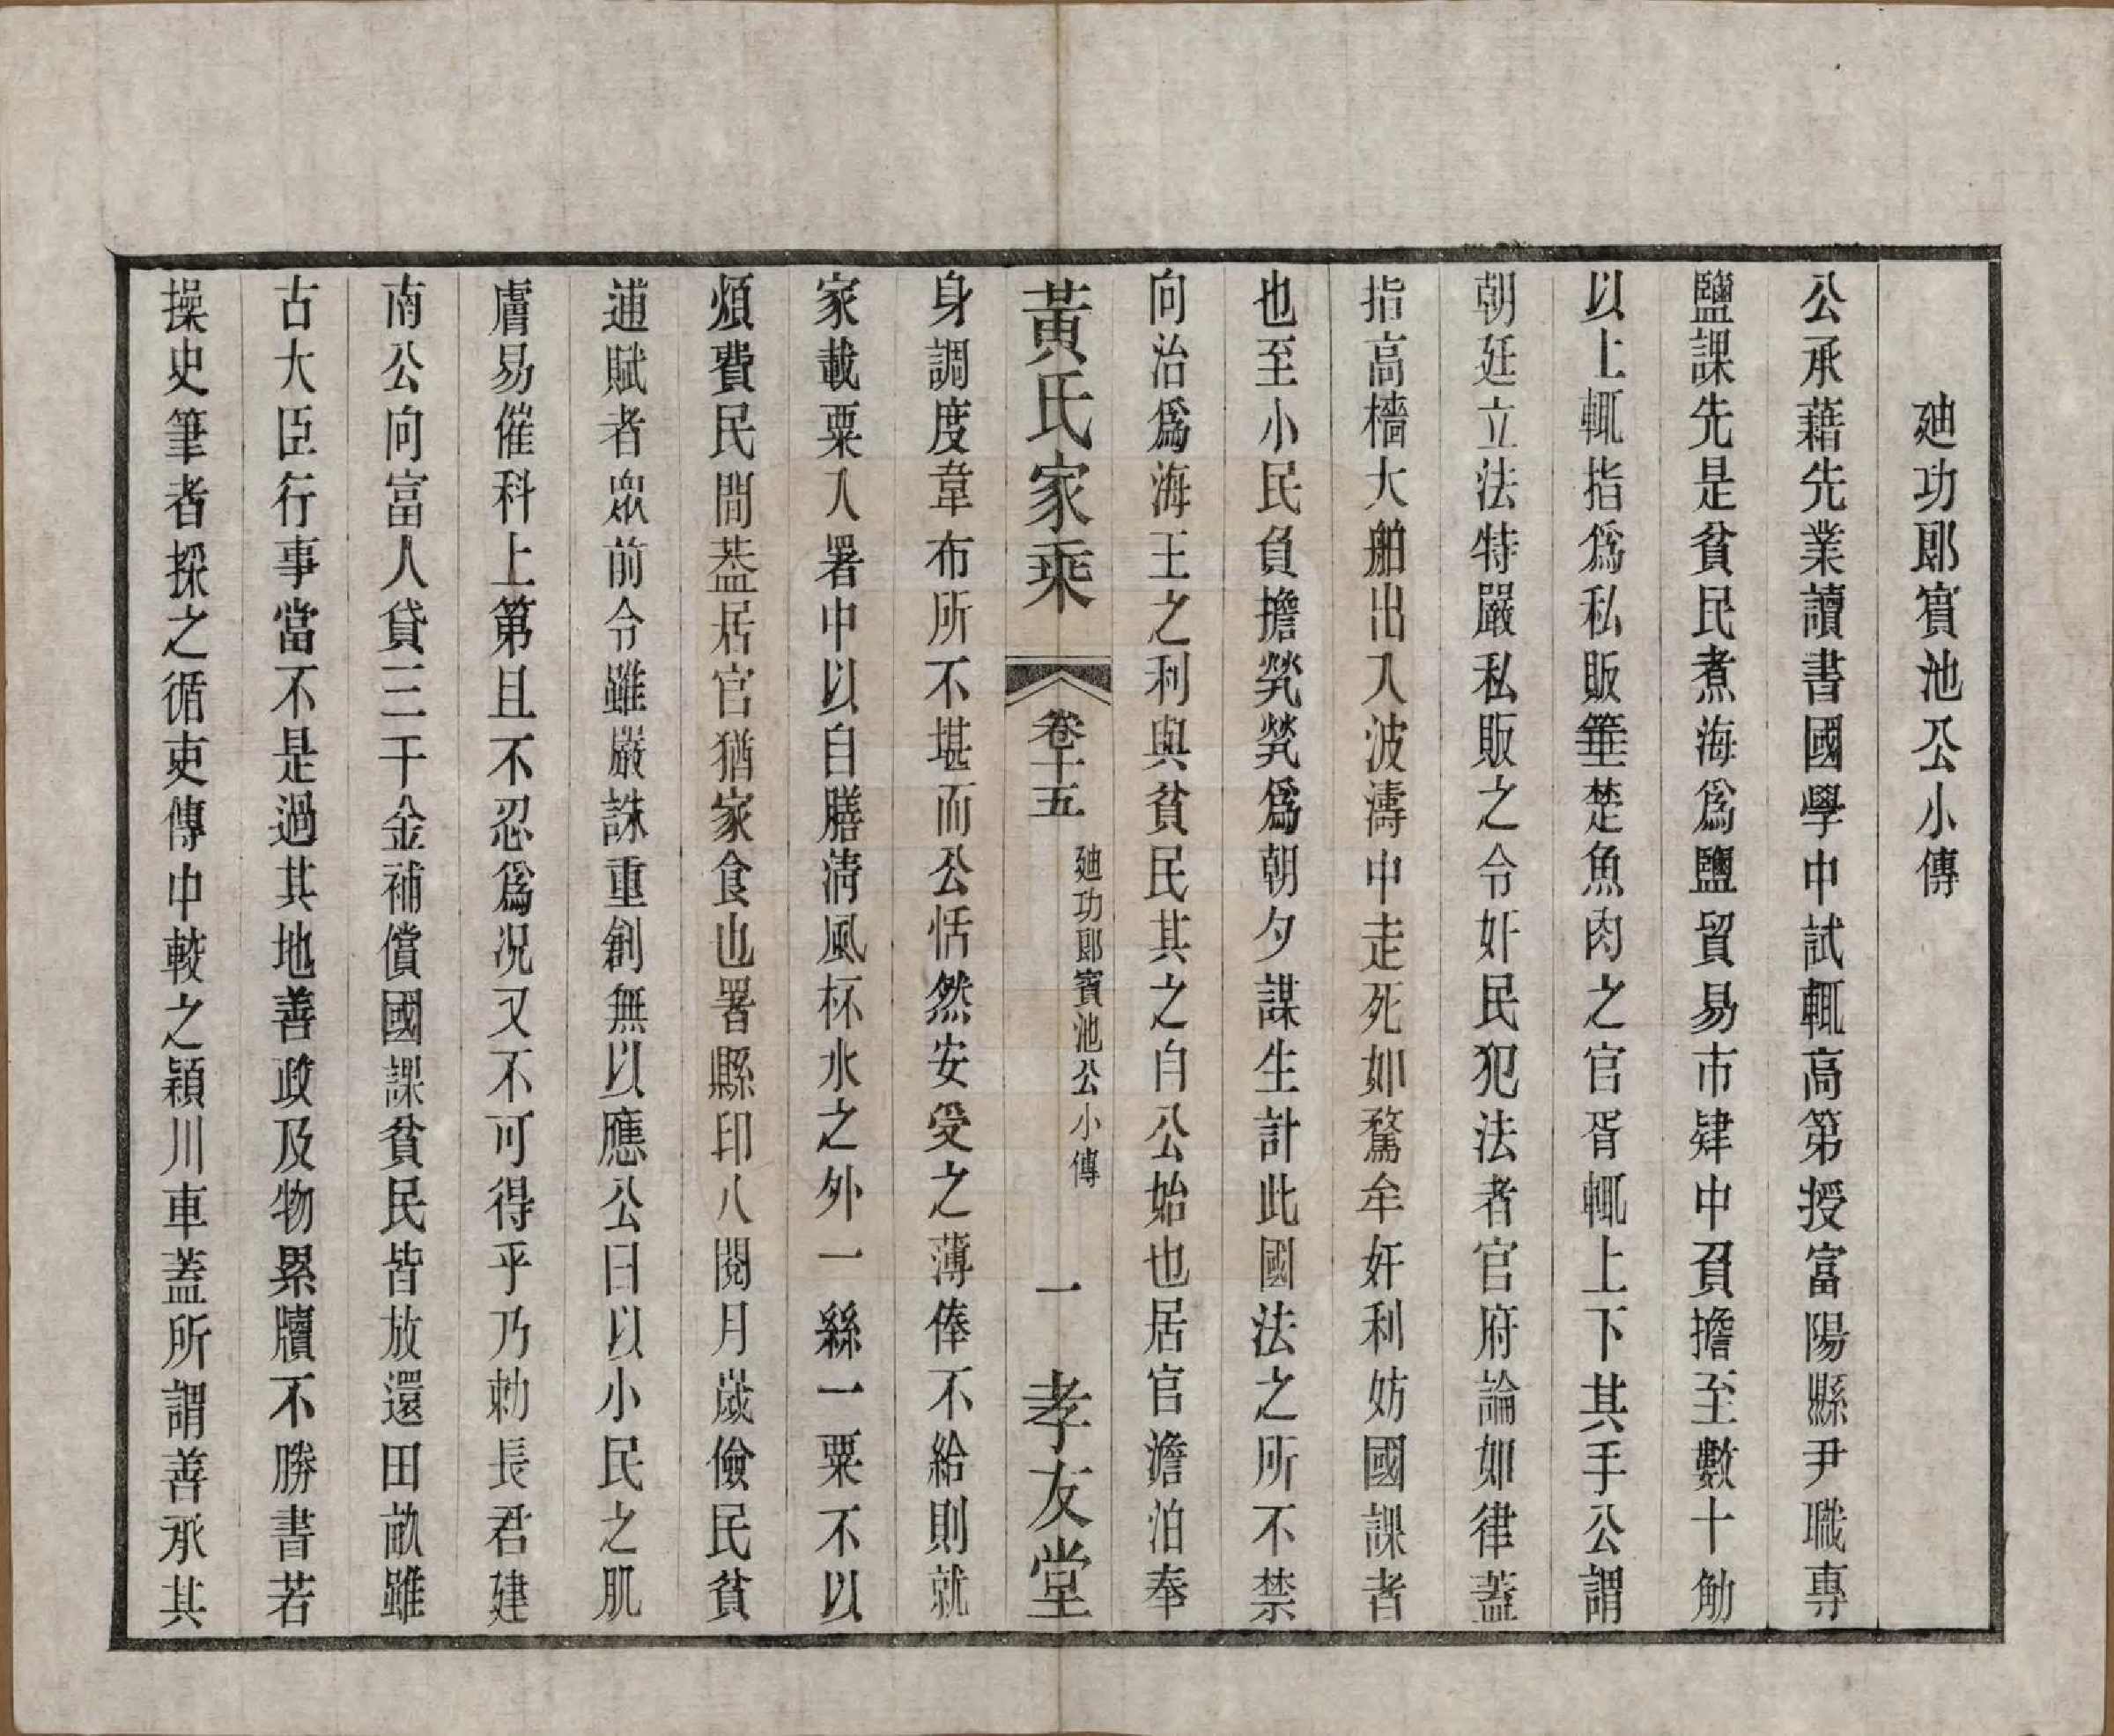 廸功郞賓池公小傳
公承藉先業讀書國學中試輒高第授富陽縣尹職專
鹽課先是貧民煮海爲鹽貿易市肆中負擔至數十觔
以上輒指爲私販箠楚魚肉之官胥輒上下其手公謂
朝廷立法特嚴私販之令奸民犯法者官府論如律蓋
指高檣大舶出入波濤中走死如騖牟奸利妨國課者
也至小民負擔煢煢爲朝夕謀生計此國法之所不禁
向治爲海王之利與貧民其之自公始也居官澹泊奉
黃氏家乘 卷十五 廸功郞賓池公小傳 一 孝友堂
身調度韋布所不堪而公恬然安受之薄俸不給則就
家載粟入署中以自膳淸風杯水之外一絲一粟不以
煩費民間葢居官猶家食也署縣印八閱月歲儉民貧
逋賦者衆前令雖嚴誅重創無以應公曰以小民之肌
膚易催科上第且不忍爲况又不可得乎乃勅長君建
南公向富人貸三千金補償國課貧民皆放還田畝雖
古大臣行事當不是過其地善政及物累牘不勝書若
操史筆者採之循吏傳中較之穎川車蓋所謂善承其